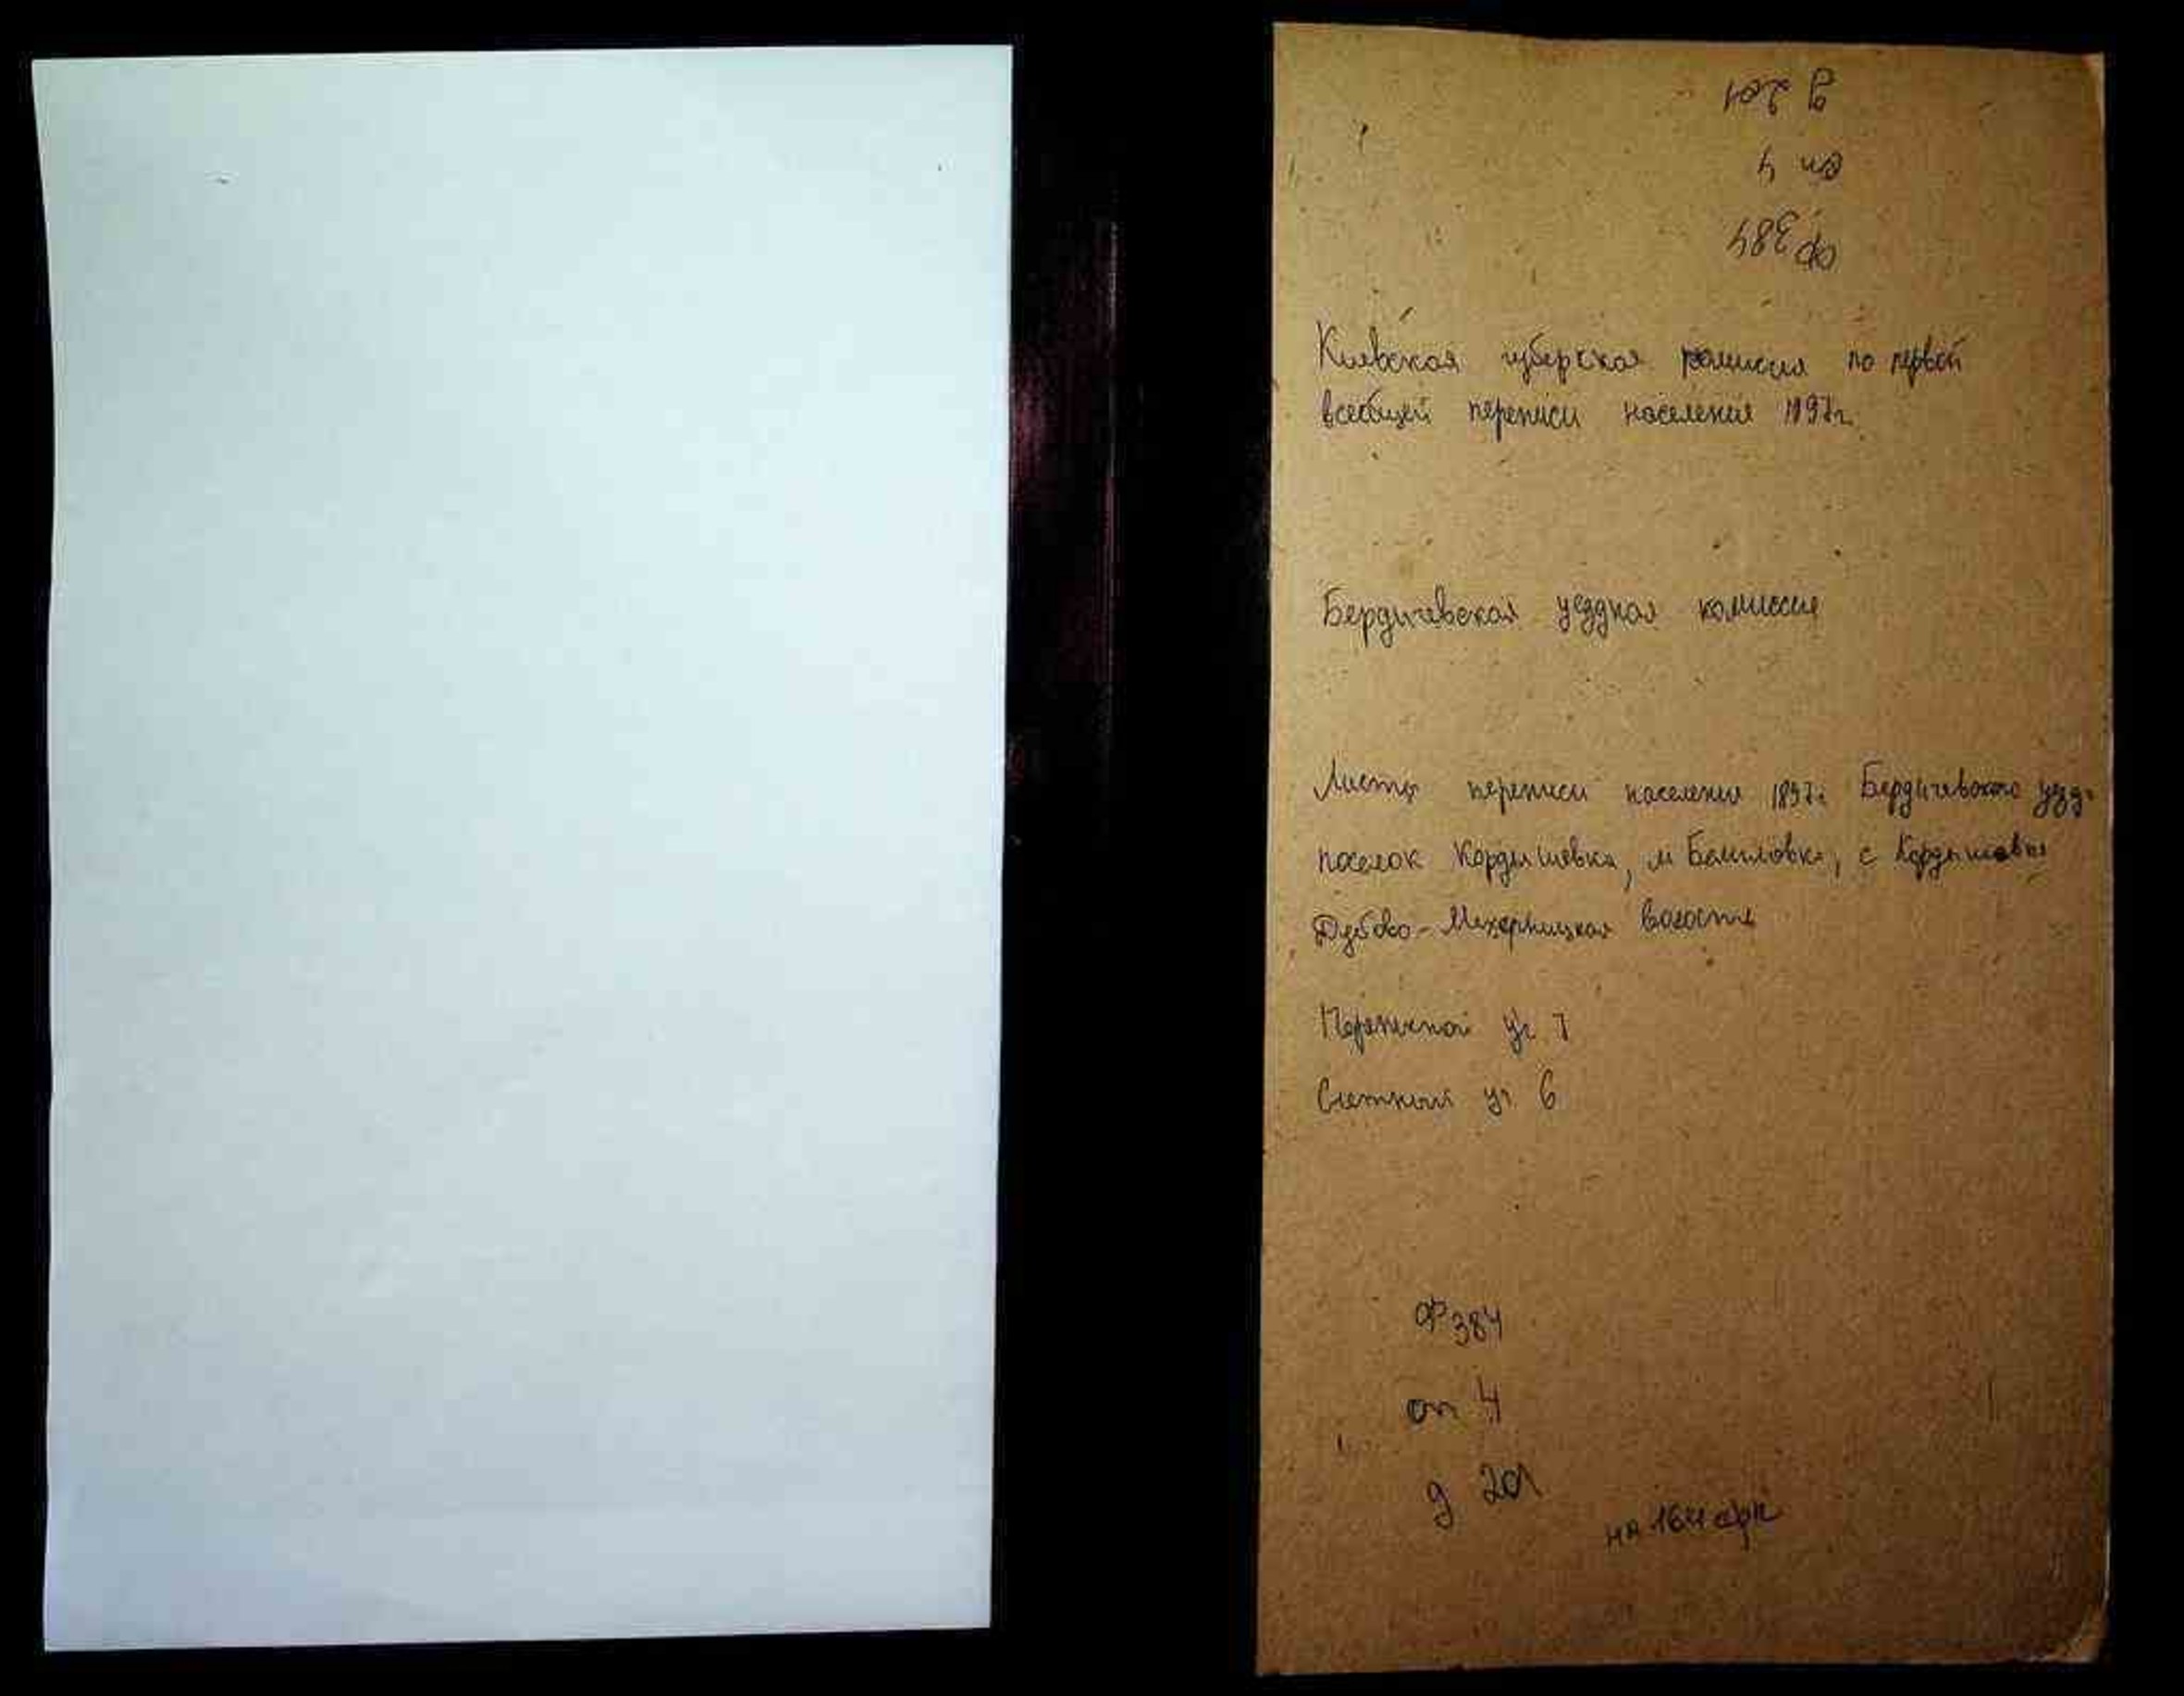 д 201
оп 4
ф 384
Киевская губерская комиссия по первой
всеобщей переписи населения 1897г.
Бердичевская уездная комиссия
Листы переписи населения 1897г. Бердичевского уезд.
поселок Кордышевка, м Вашловка, с Кордышовка
Дубово-Махаринецкая волость
Переписной уч 7
Счетный уч 6
ф 384
оп 4
д 201
на 164 арк